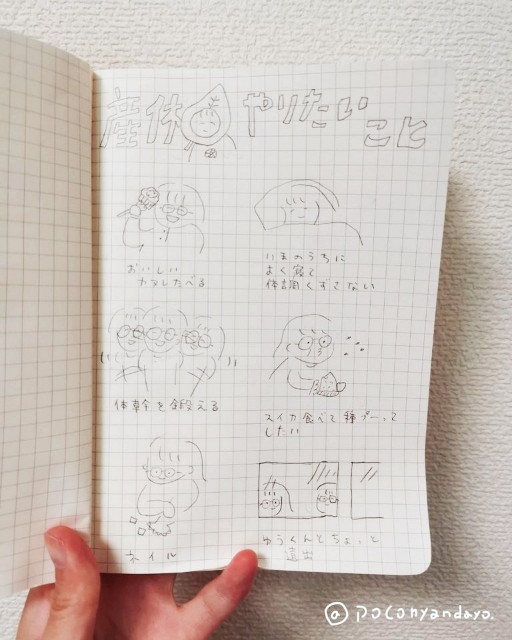 産休 やりたい
こと
おいしい
カヌレたべる
いまのうちに
よく寝て
体調くずさない
体幹を鍛える
スイカ食べて種プーって
したい
ネイル
ゆうくんとちょっと
遠出
@poconyandayo.